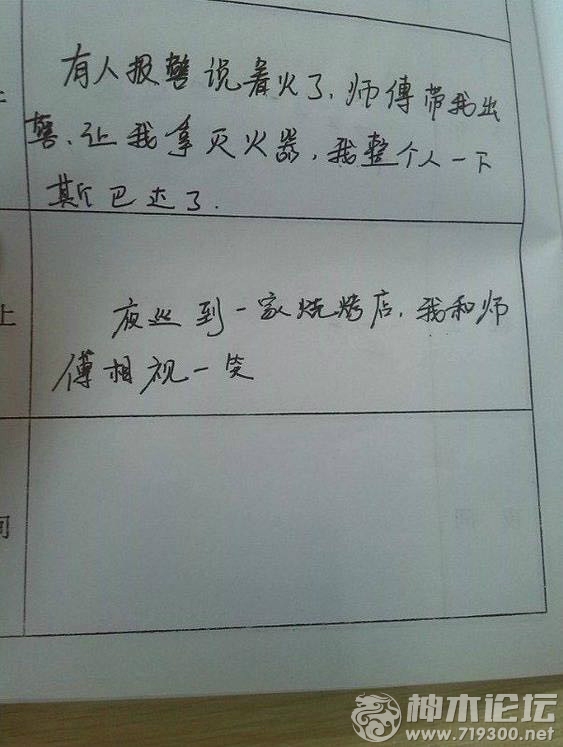 有人报警说着火了，师傅带我出
警，让我拿灭火器，我整个人一下
斯巴达了．
上
夜巡到一家烧烤店，我和师
傅相视一笑
间
神木论坛
www.719300.net